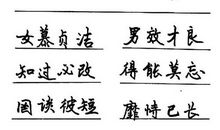 女慕贞洁 男效才良
知过必改 得能莫忘
罔谈彼短 靡恃己长